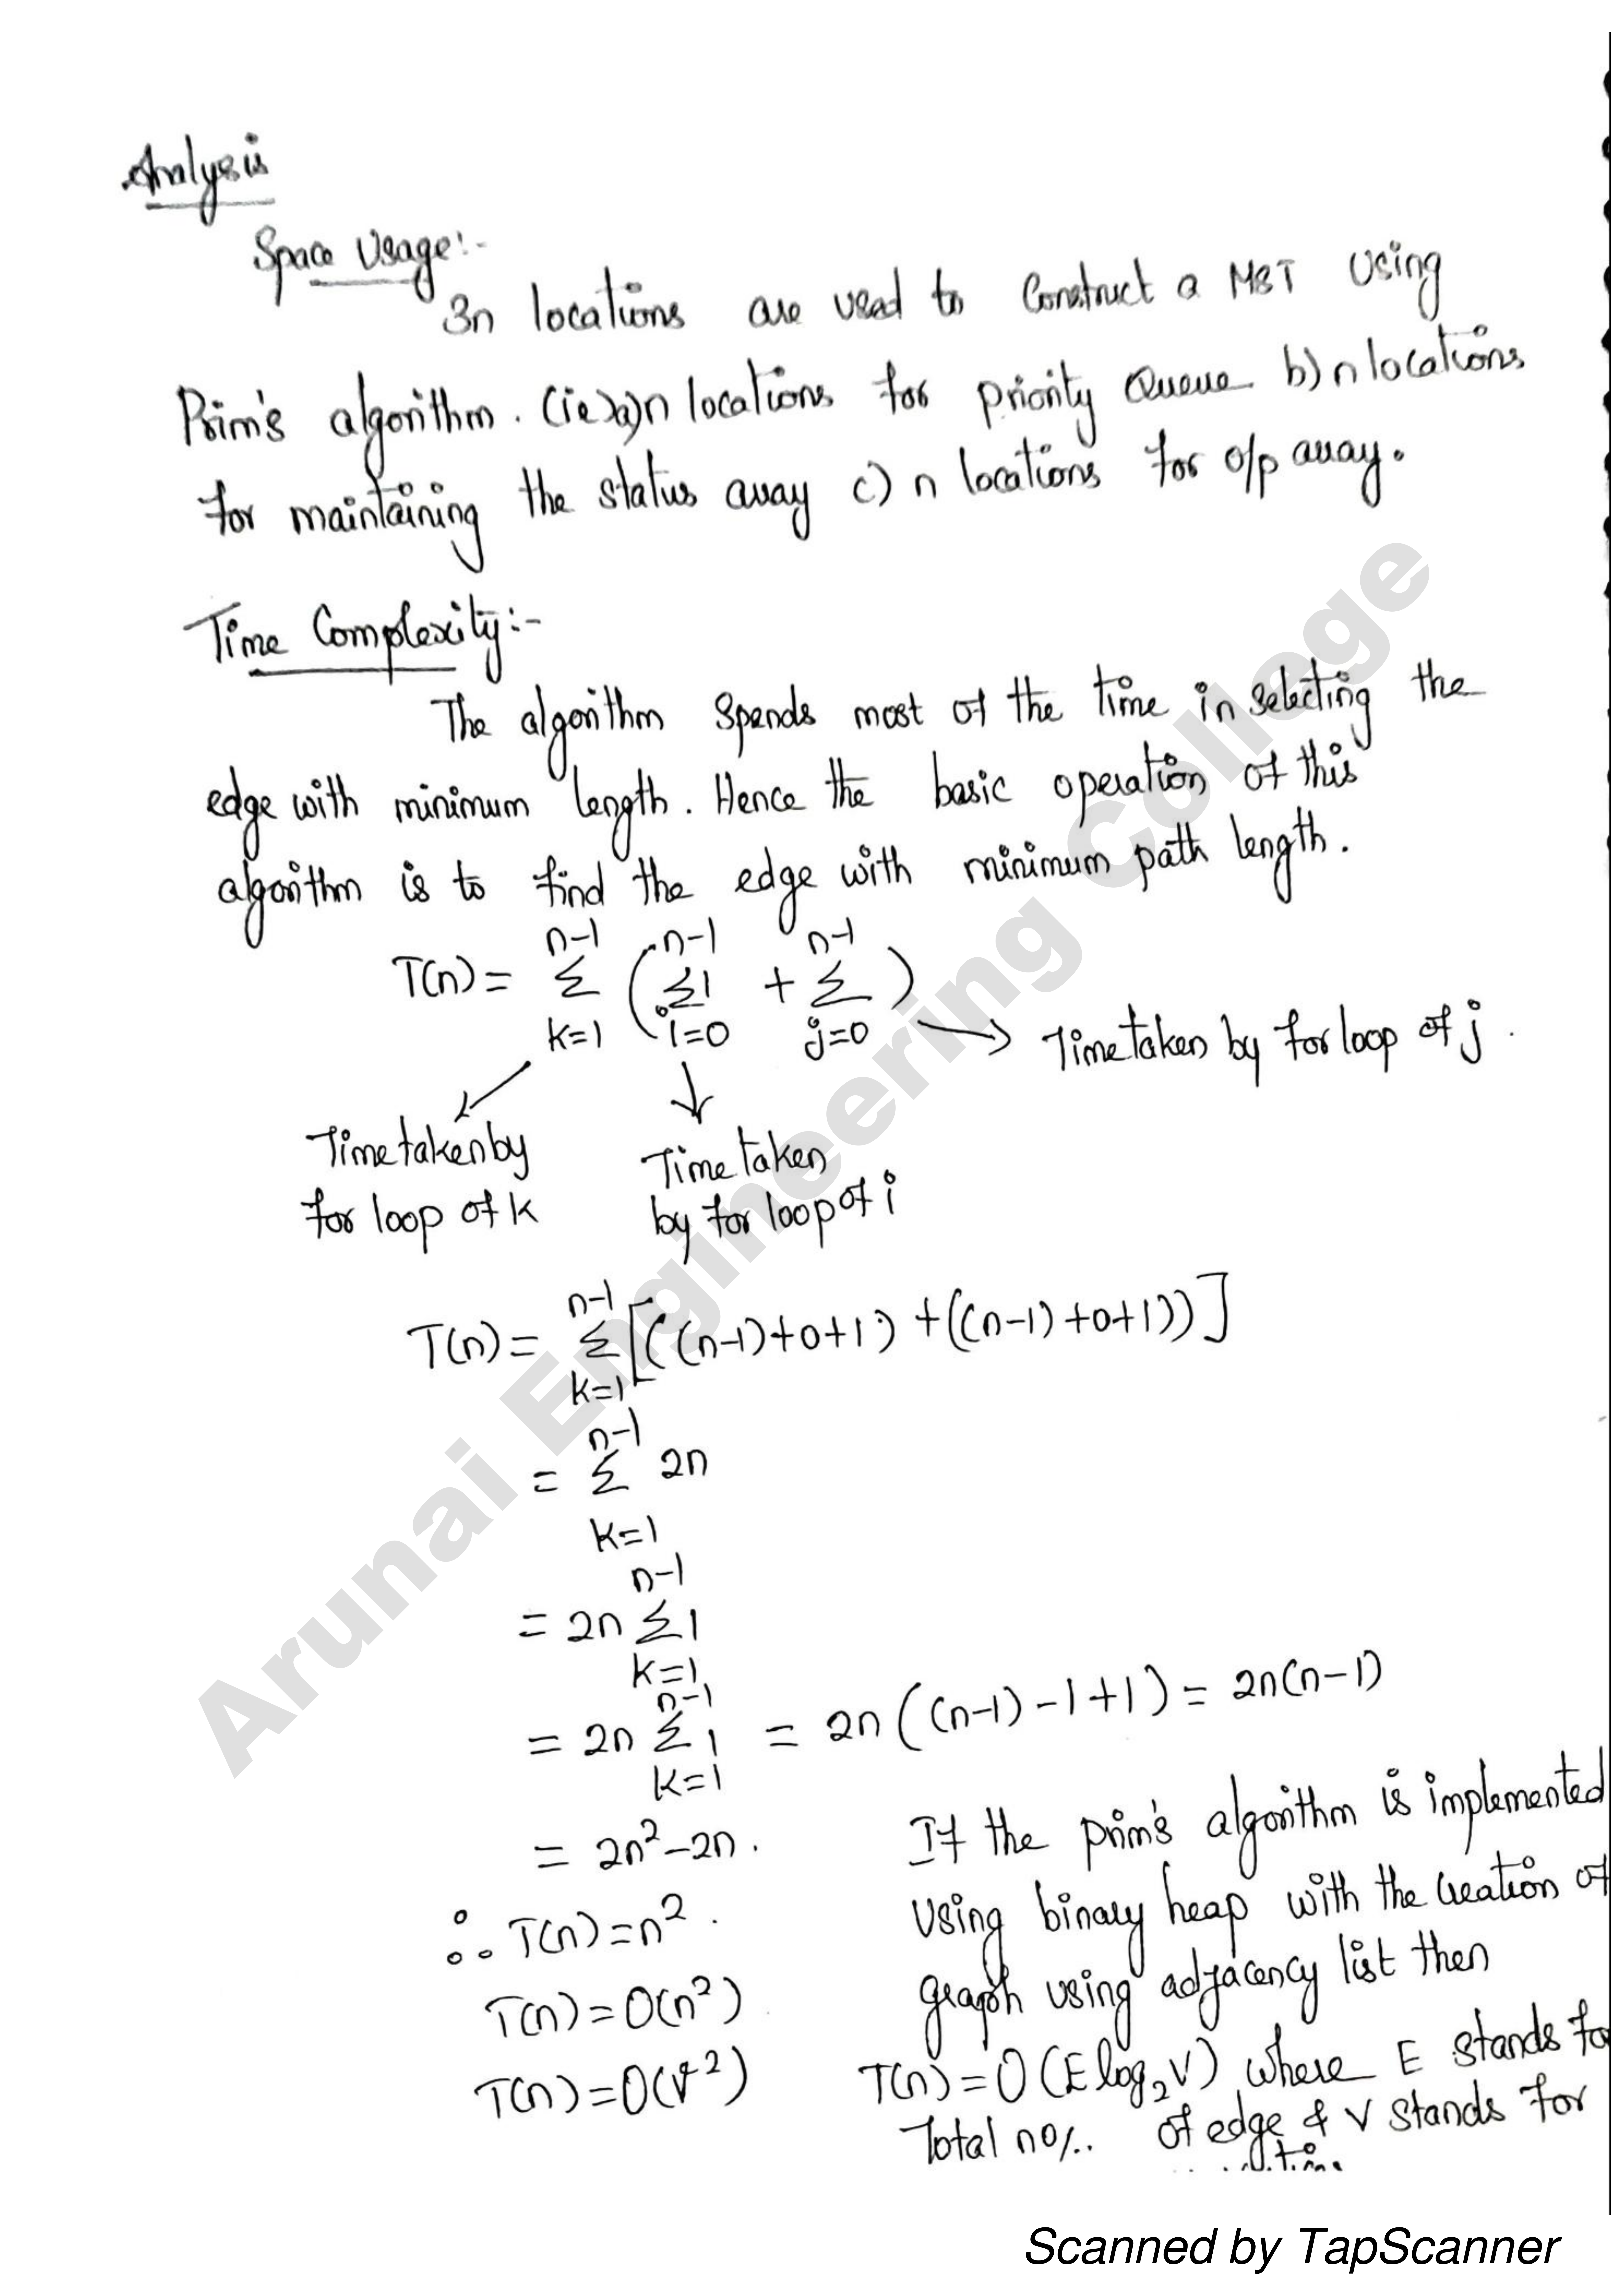 Analysis
Space Usage:-
3n locations are used to construct a MST Using
Prim's algorithm. (ie) a) n locations for priority Queue b) n locations
for maintaining the status array c) n locations for o/p array.
Time Complexity:-
The algorithm spends most of the time in selecting the
edge with minimum length. Hence the basic operation of this
algorithm is to find the edge with minimum path length.
T(n) = Σ_{k=1}^{n-1} ( Σ_{i=0}^{n-1} 1 + Σ_{j=0}^{n-1} )
→ Time taken by for loop of j.
Time taken by
for loop of k
Time taken
by for loop of i
T(n) = Σ_{k=1}^{n-1} [((n-1)+0+1) + ((n-1)+0+1))]
= Σ_{k=1}^{n-1} 2n
= 2n Σ_{k=1}^{n-1} 1
= 2n Σ_{k=1}^{n-1} 1 = 2n((n-1)-1+1) = 2n(n-1)
= 2n²-2n.
∴ T(n) = n².
T(n) = O(n²)
T(n) = O(V²)
If the prim's algorithm is implemented
Using binary heap with the creation of
graph using adjacency list then
T(n) = O(E log₂V) where E stands fo
Total no/.. of edge & V stands for
Arunai Engineering College
Scanned by TapScanner